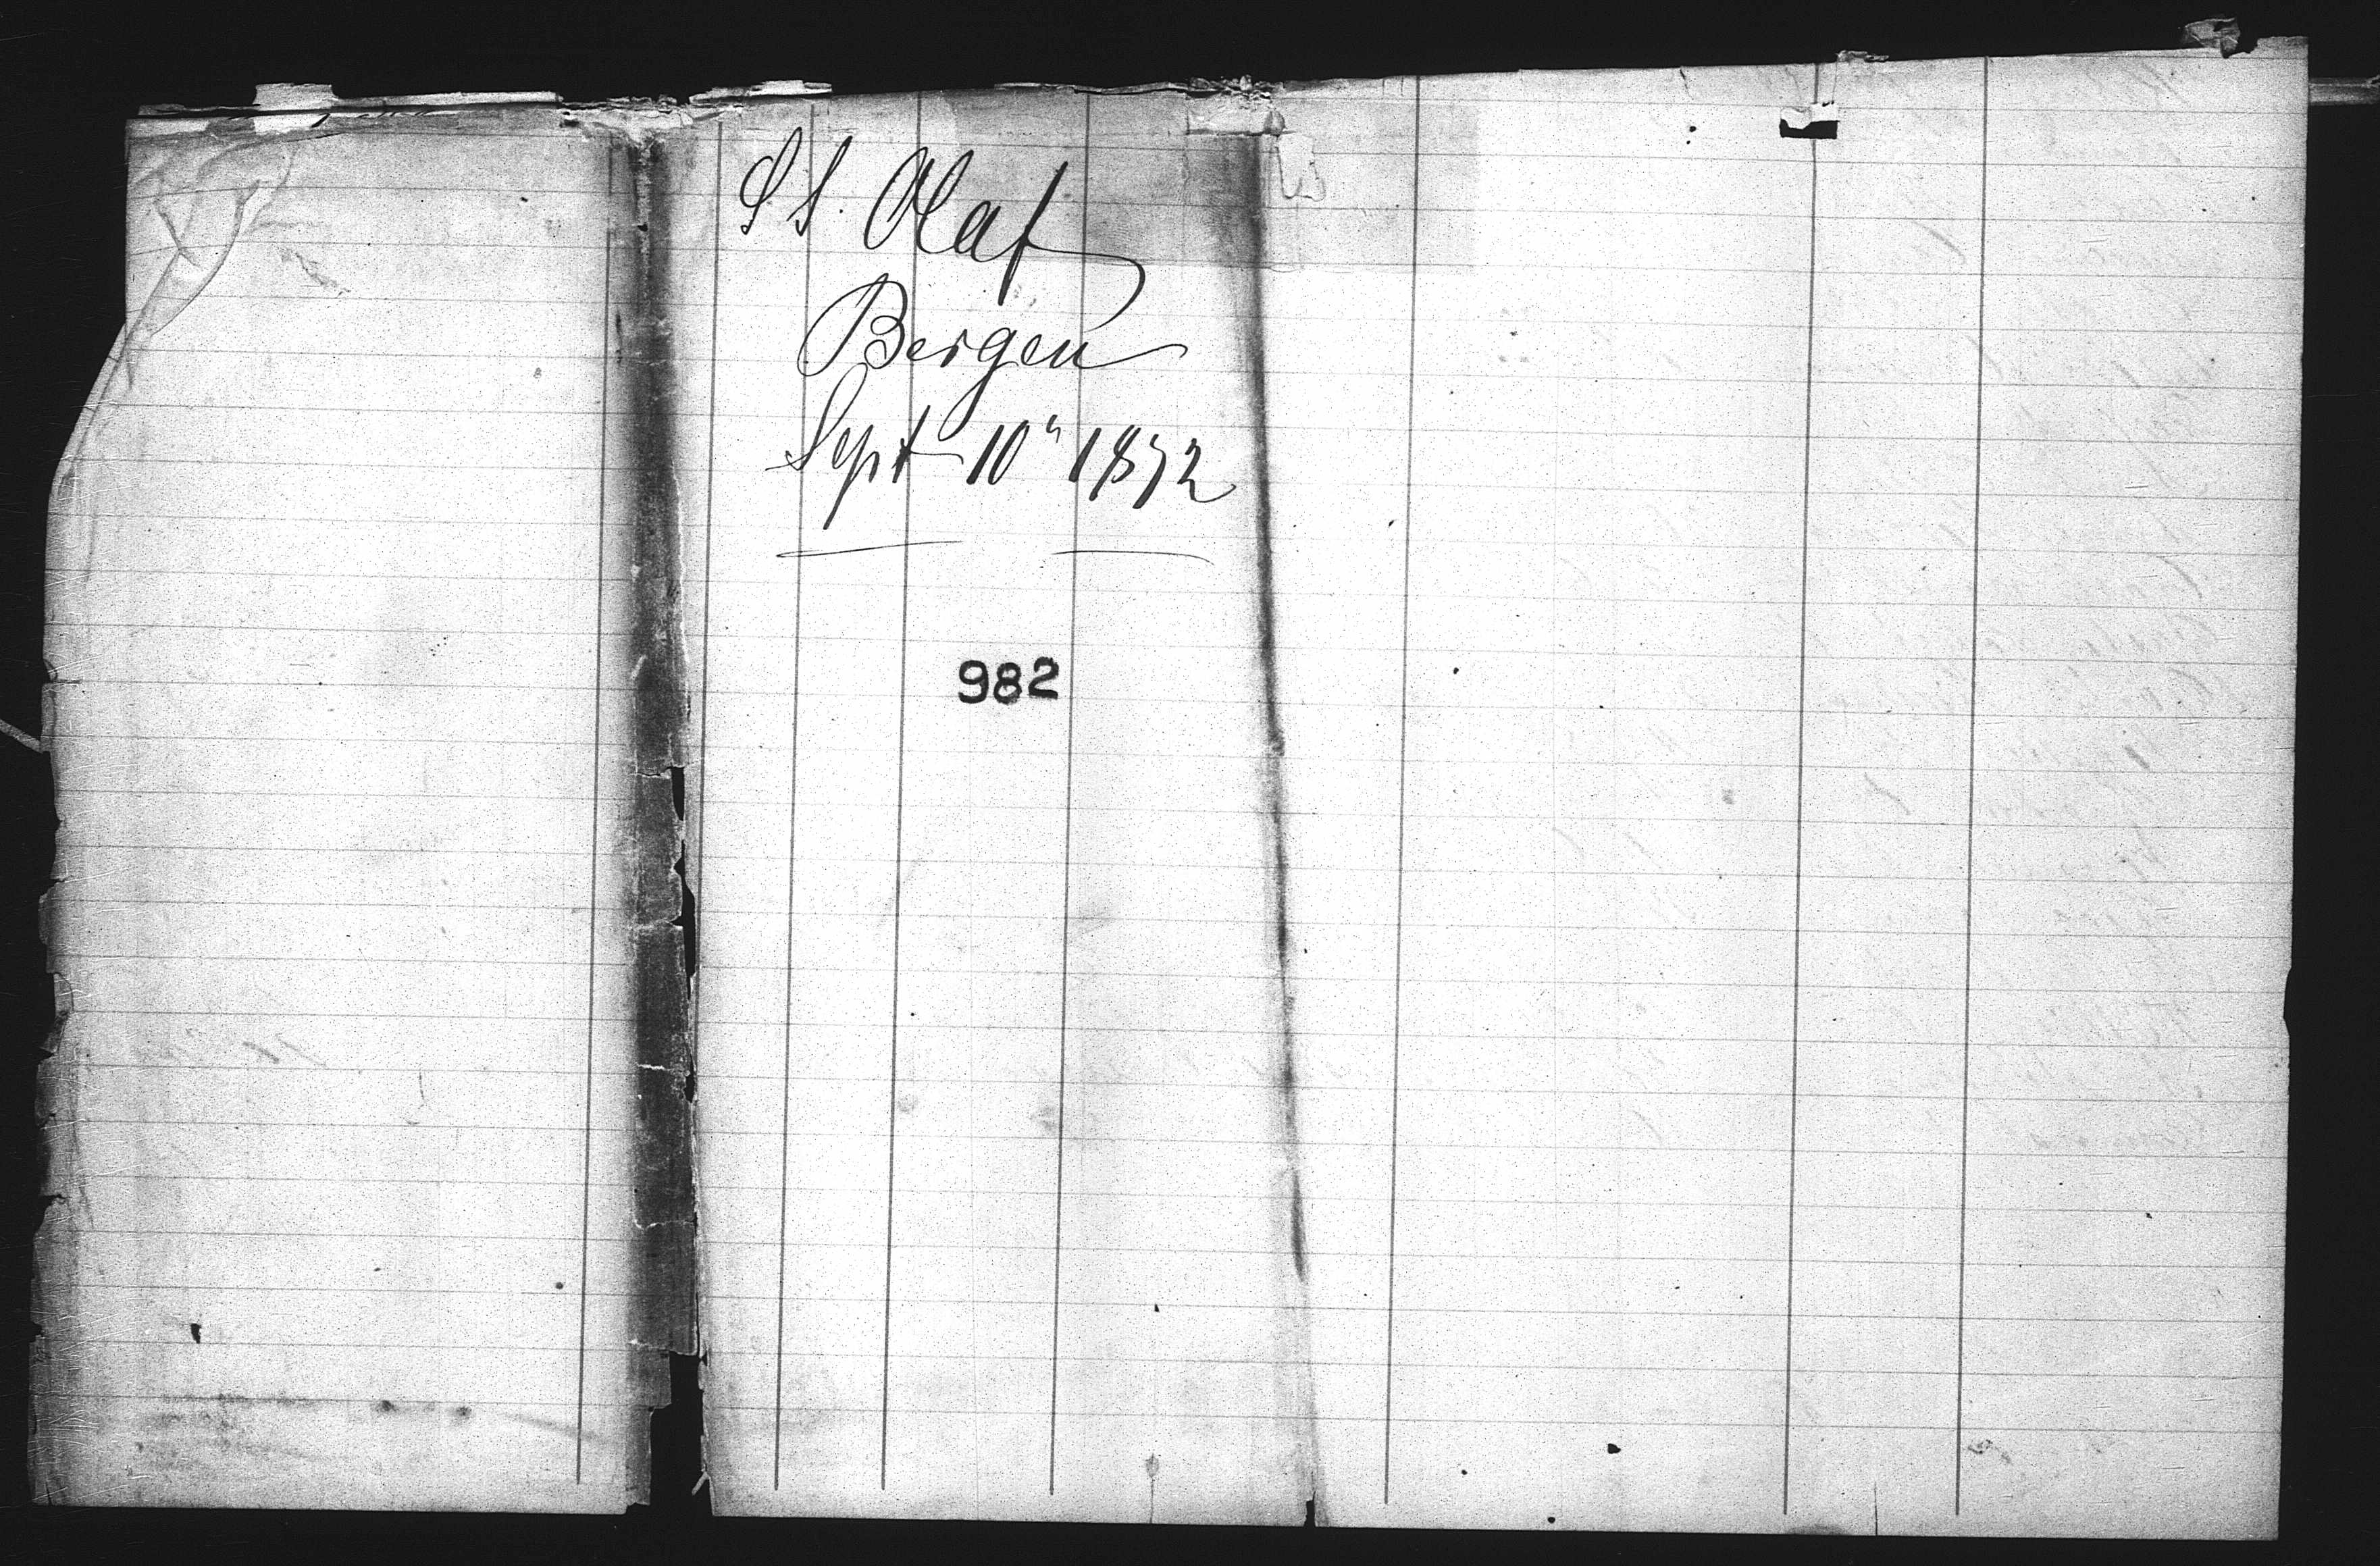 S S. Olaf
Bergen
Sept 10" 1872
982